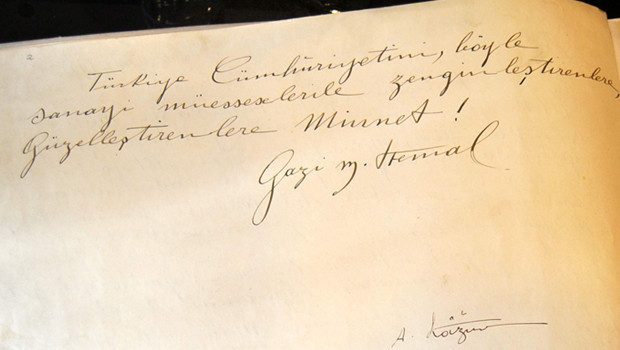 2
Türkiye Cümhuriyetini, böyle
sanayi müesseselerile zenginleştirenlere,
Güzelleştirenlere Minnet!
Gazi M. Kemal
A. Kâzım